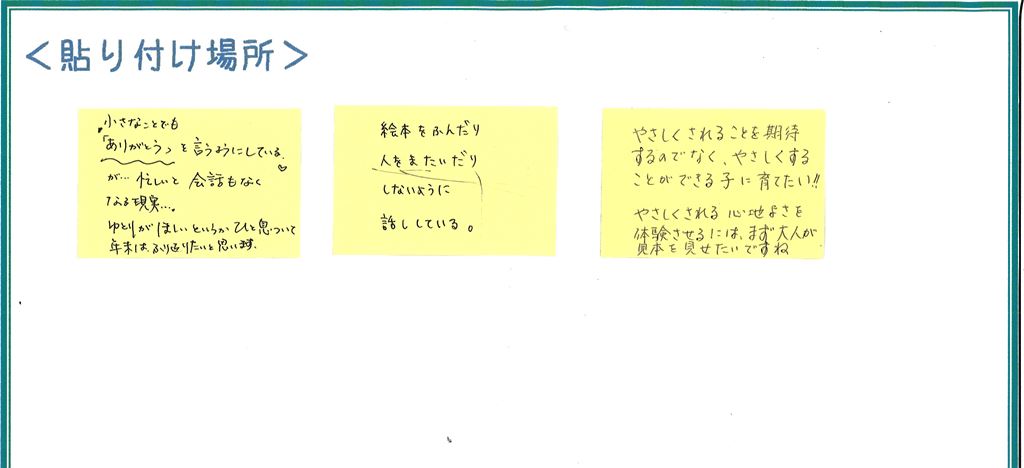 ＜貼り付け場所＞
小さなことでも
「ありがとう」と言うようにしている。
が… 忙しいと 会話もなく
なる現実…。
ゆとりがほしいというか ひと息ついて
年末は、ふり返りたいと思います。
絵本をふんだり
人をまたいだり
しないように
話ししている。
やさしくされることを期待
するのでなく、やさしくする
ことができる子に育てたい!!
やさしくされる 心地よさを
体験させるには、まず大人が
見本を見せたいですね